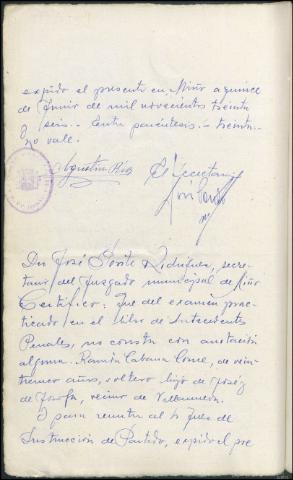 expido el presente en Miño a quince
de Junio de mil novecientos treinta
y seis.- Entre paréntesis:- treinta-
no vale.
Agustin Ríos El Secretario
José
Don José Porto secre-
tario del Juzgado municipal de Miño
Certifico: Que del examen prac-
ticado en el libro de Antecedentes
Penales, no consta con anotación
alguna. Ramón Cabana Come, de vein-
tinueve años, soltero hijo de José y
de Josefa, vecino de Villanueva.
Y para remitir al Sr Juez de
Instrucción de Partido, expido el pre